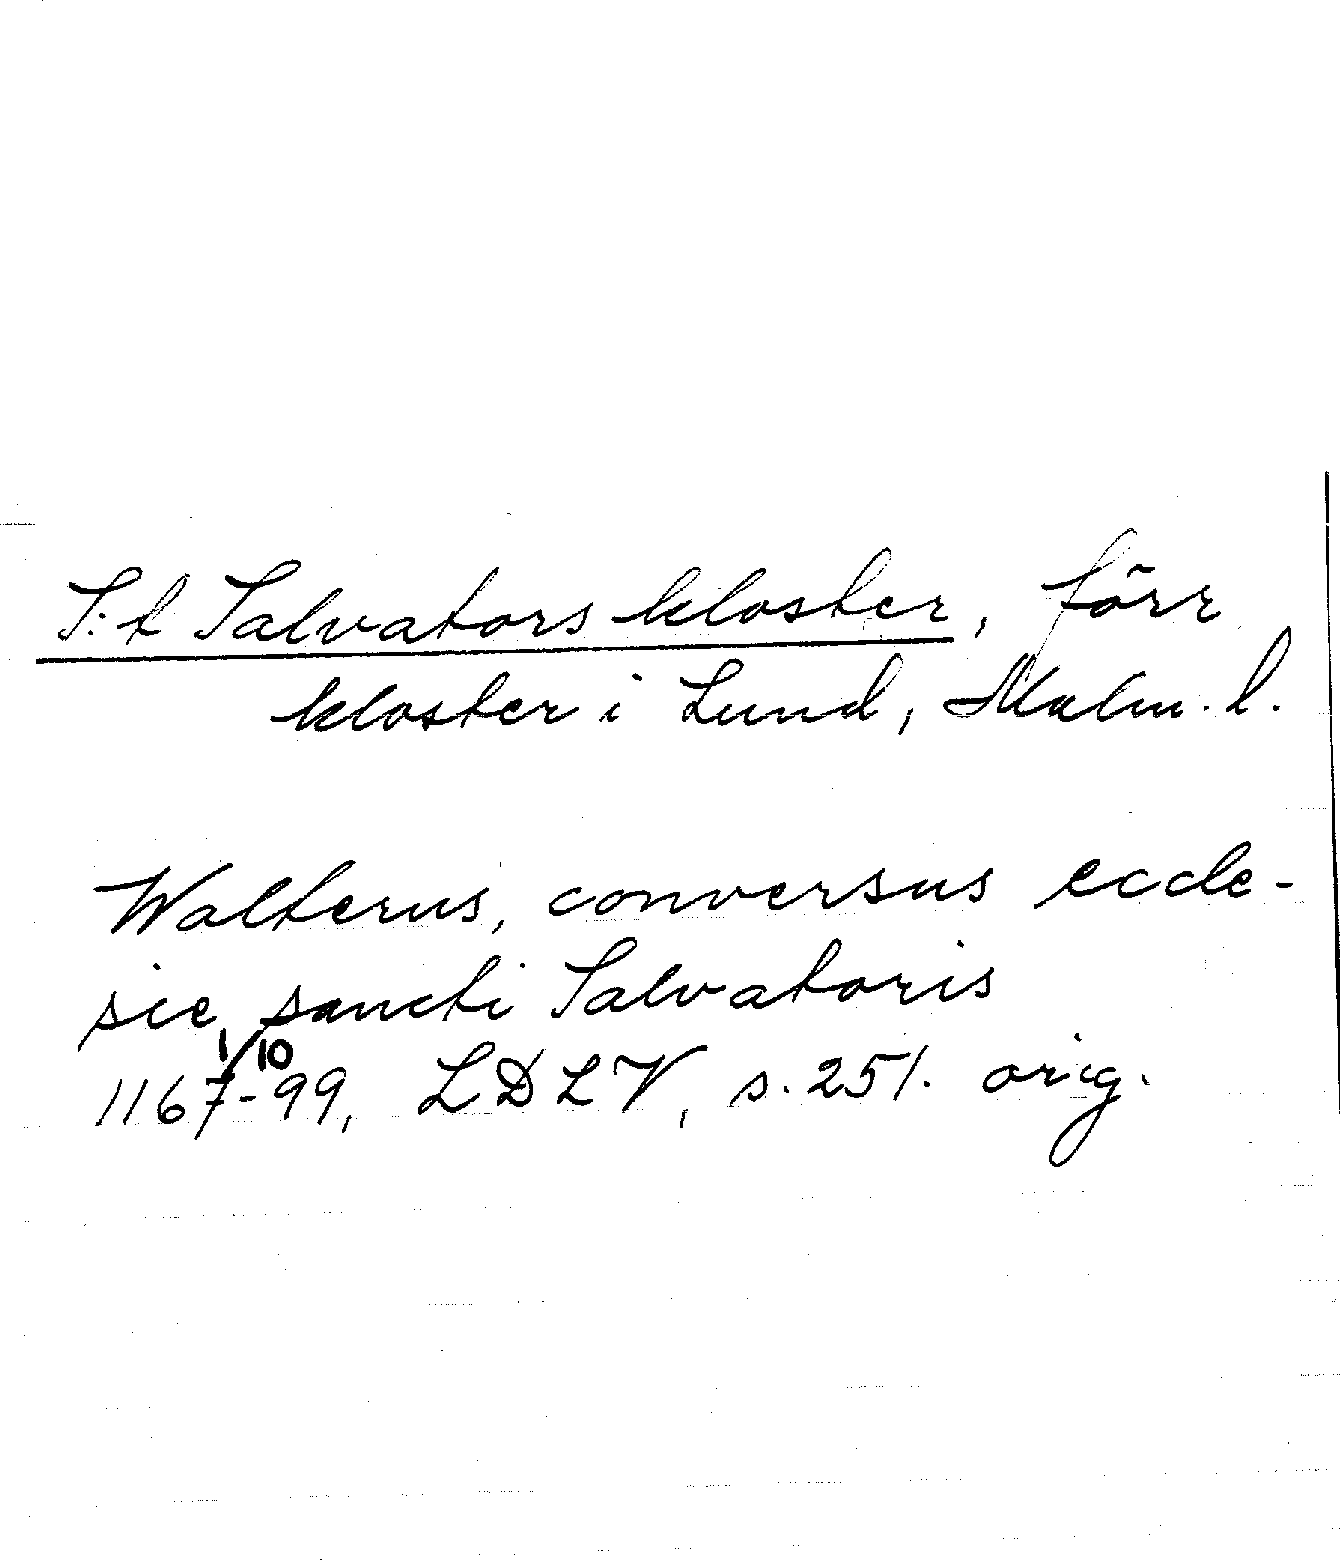 S:t Salvators kloster, förr
kloster i Lund, Malm. l.
Walterus, conversus eccle-
sie sancti Salvatoris
1/10
1167-99, LDLV, s. 251. orig.